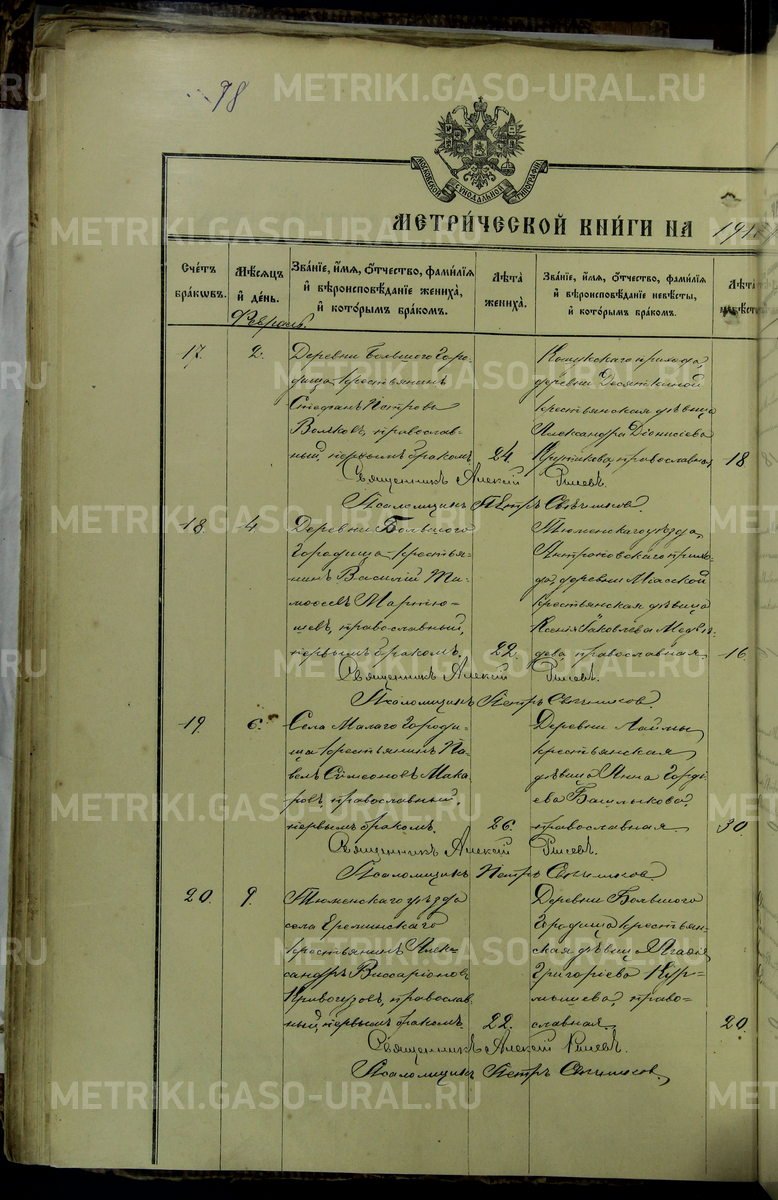 98
МОСКОВСКОЙ СѴНОДАЛЬНОЙ ТИПОГРАФІИ
МЕТРИ́ЧЕСКОЙ КНИ́ГИ НА 191
Сче́тъ бра́кѡвъ.
Мѣ́сѧцъ и҆ де́нь.
Зва́нїе, и҆́мѧ, ѻ҆́тчество, фами́лїѧ и҆ вѣроисповѣ́данїе жениха̀, и҆ кото́рымъ бра́комъ.
Лѣ́та жениха̀.
Зва́нїе, и҆́мѧ, ѻ҆́тчество, фами́лїѧ и҆ вѣроисповѣ́данїе невѣ́сты, и҆ кото́рымъ бра́комъ.
Лѣ́та невѣ́сты
Февраль.
17. 2.
Деревни Большого Горо-
дища крестьянинъ
Стефанъ Петровъ
Волковъ, православ-
ный, первымъ бракомъ
24
Кошукскаго прихода,
деревни Десяткиной
крестьянская дѣвица
Александра Діонисіева
православная
18
Священникъ Алексій
Псаломщикъ Петръ
18. 4.
Деревни Большого
Городища крестья-
нинъ Василій Ти-
моѳеевъ Мартю-
шевъ, православный,
первымъ бракомъ.
22.
Тюменскаго уѣзда,
Антроповскаго прихо-
да, деревни Міасской
крестьянская дѣвица
Ксенія Яковлева Медвѣ-
дева православная
16
Священникъ Алексій
Псаломщикъ Петръ
19 6.
Села Малаго Городи-
ща крестьянинъ Па-
велъ Симеоновъ Мака-
ровъ, православный,
первымъ бракомъ.
26.
Деревни Лаймы
крестьянская
дѣвица Анна Горді-
ева Башлыкова,
православная
30
Священникъ Алексій
Псаломщикъ Петръ
20. 9.
Тюменскаго уѣзда
села Ереминскаго
крестьянинъ Алек-
сандръ Виссаріоновъ
Кривогузовъ, православ-
ный, первымъ бракомъ
22.
Деревни Большого
Городища крестьян-
ская дѣвица Агафія
Григоріева Кур-
мышева, право-
славная
20.
Священникъ Алексій
Псаломщикъ Петръ
METRIKI.GASO-URAL.RU